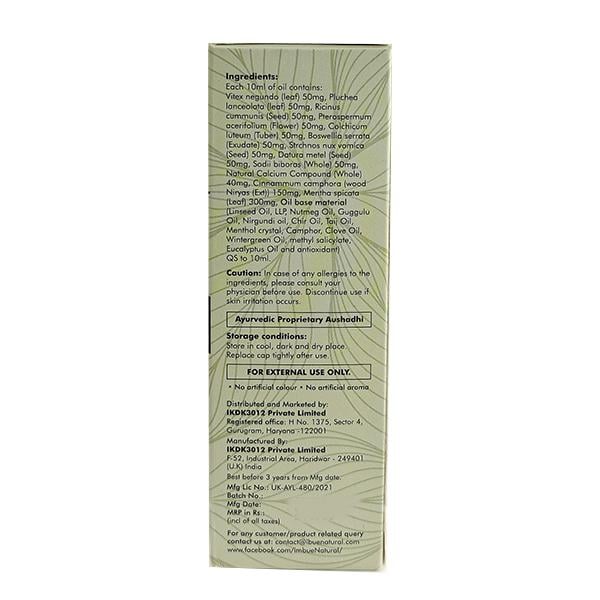 Ingredients:
Each 10ml of oil contains:
Vitex negundo (leaf) 50mg, Pluchea
lanceolata (leaf) 50mg, Ricinus
cummunis (Seed) 50mg, Pterospermum
acerifolium (Flower) 50mg, Colchicum
luteum (Tuber) 50mg, Boswellia serrata
(Exudate) 50mg, Strchnos nux vomica
(Seed) 50mg, Datura metel (Seed)
50mg, Sodii biboras (Whole) 50mg,
Natural Calcium Compound (Whole)
40mg, Cinnammum camphora (wood
Niryas (Ext)) 150mg, Mentha spicata
(Leaf) 300mg, Oil base material
(Linseed Oil, LLP, Nutmeg Oil, Guggulu
Oil, Nirgundi oil, Chir Oil, Taij Oil,
Menthol crystal, Camphor, Clove Oil,
Wintergreen Oil, methyl salicylate,
Eucalyptus Oil and antioxidant)
QS to 10ml.
Caution: In case of any allergies to the
ingredients, please consult your
physician before use. Discontinue use if
skin irritation occurs.
Ayurvedic Proprietary Aushadhi
Storage conditions:
Store in cool, dark and dry place.
Replace cap tightly after use.
FOR EXTERNAL USE ONLY.
• No artificial colour • No artificial aroma
Distributed and Marketed by:
IKDK3012 Private Limited
Registered office: H No. 1375, Sector 4,
Gurugram, Haryana -122001
Manufactured By:
IKDK3012 Private Limited
F-52, Industrial Area, Haridwar - 249401
(U.K) India
Best before 3 years from Mfg date.
Mfg Lic No.: UK-AYL-480/2021
Batch No.:
Mfg Date:
MRP in Rs.:
(incl of all taxes)
For any customer/product related query
contact us at: contact@ibuenatural.com
www.facebook.com/imbueNatural/